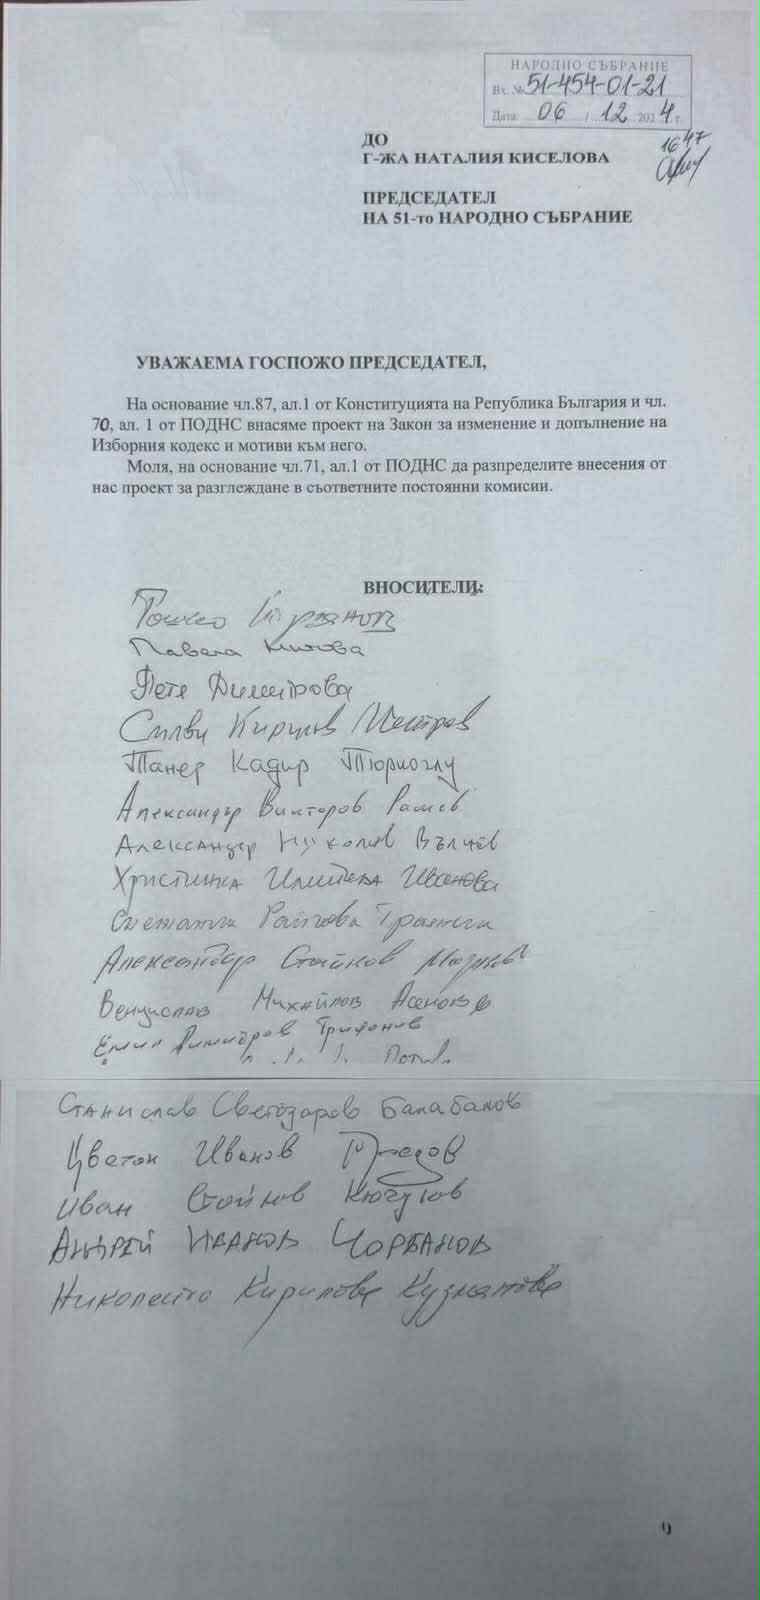 НАРОДНО СЪБРАНИЕ
Вх. № 51-454-01-21
Дата 06 / 12 2024 г.
1647
ДО
Г-ЖА НАТАЛИЯ КИСЕЛОВА
ПРЕДСЕДАТЕЛ
НА 51-то НАРОДНО СЪБРАНИЕ
УВАЖАЕМА ГОСПОЖО ПРЕДСЕДАТЕЛ,
На основание чл.87, ал.1 от Конституцията на Република България и чл.
70, ал. 1 от ПОДНС внасяме проект на Закон за изменение и допълнение на
Изборния кодекс и мотиви към него.
Моля, на основание чл.71, ал.1 от ПОДНС да разпределите внесения от
нас проект за разглеждане в съответните постоянни комисии.
ВНОСИТЕЛИ:
Павела
Петя Димитрова
Силви Кирилов
Танер Кадир
Александър Викторов
Александър Николов Вълчев
Христинка Иванова
Александър Стойков
Венцислав Михайлов Асенов
Емил Димитров Трифонов
Станислав Светозаров Балабанов
Цветан Иванов
Иван Стойнов Кючуков
АНДРЕЙ ИВАНОВ ЧОРБАНОВ
Николета Кирилова Кузманова